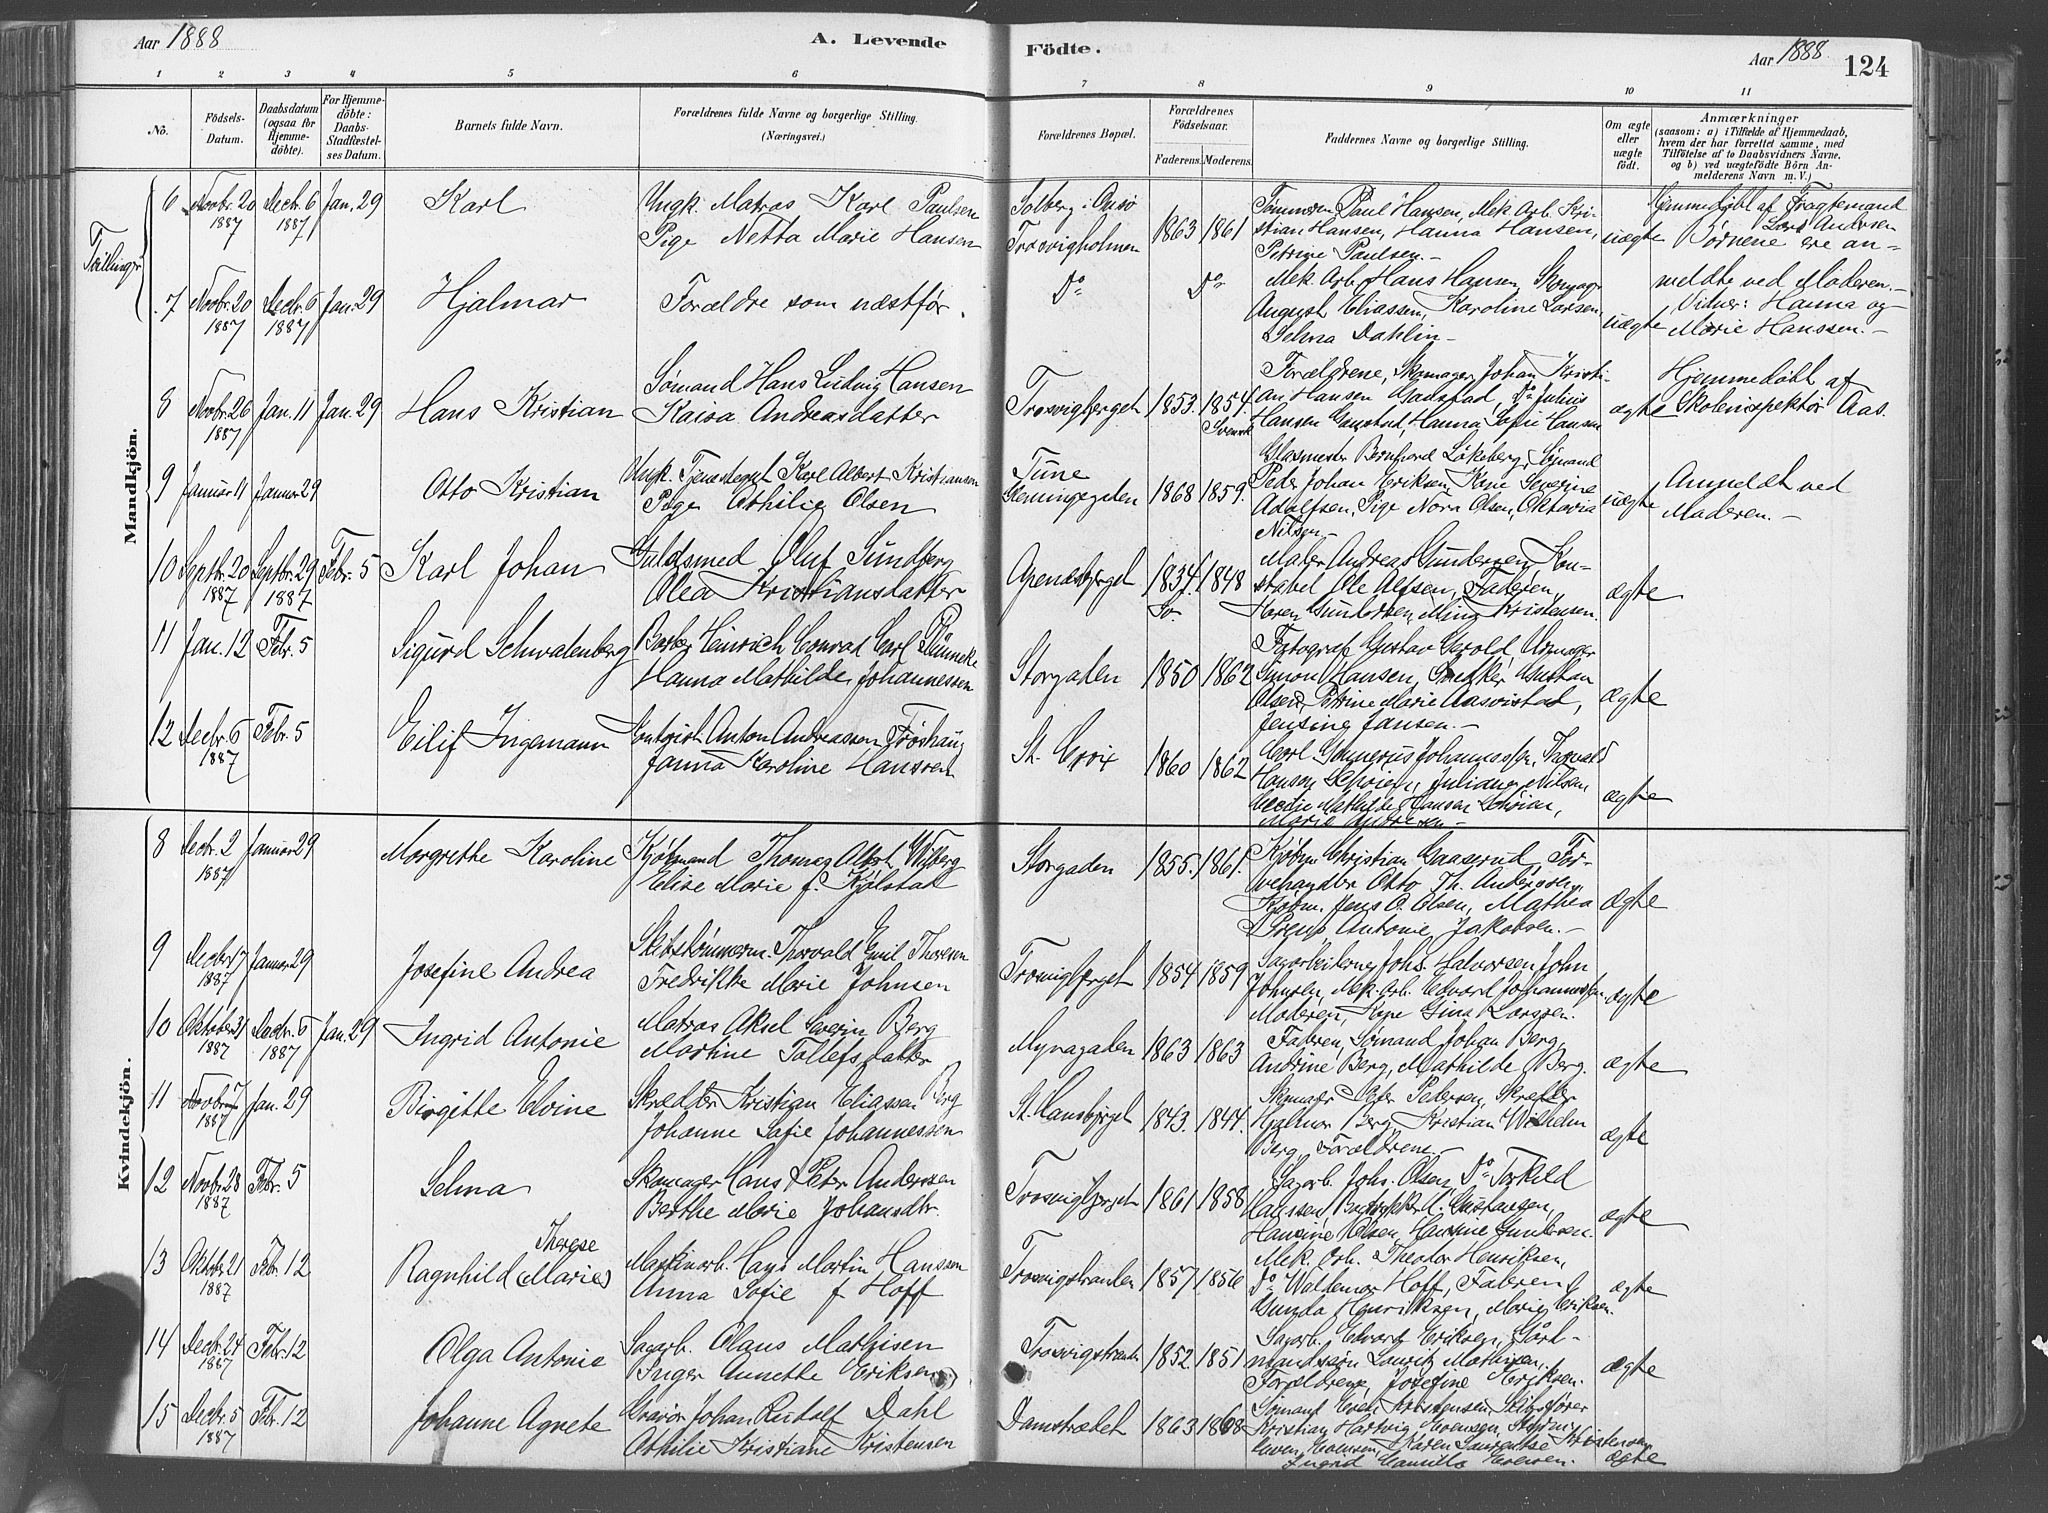 Aar 1888
A. Levende
Födte.
Aar 1888.
124
1 2 3 4 5 6 7 8 9 10 11
No.
Födsels-
Datum.
Daabsdatum
(ogsaa for
Hjemme-
döbte).
For Hjemme-
döbte:
Daabs-
Stadfæstel-
ses Datum.
Barnets fulde Navn.
Forældrenes fulde Navne og borgerlige Stilling.
(Næringsvei.)
Forældrenes Bopæl.
Forældrenes
Födselsaar.
Faderens. Moderens.
Faddernes Navne og borgerlige Stilling.
Om ægte
eller
uægte
födt.
Anmærkninger
(saasom: a) i Tilfælde af Hjemmedaab,
hvem der har forrettet samme, med
Tilföielse af to Daabsvidners Navne,
og b) ved uægtefödte Börn An-
melderens Navn m. V.)
Mandkjön.
Tvillinger
6 Novbr. 20 1887 Decbr. 6 1887 Jan. 29 Karl
Ungk. Matros Karl Paulsen
Pige Netta Marie Hansen
Solberg i Onsø
Trosvigholmen
1863 1861
Tømmerm. Paul Hansen, Mek. Arb. Kri-
stian Hansen, Hanna Hansen,
Petrine Paulsen.-
uægte
Hjemmedøbt af Fragtemand
Andersen
Børnene ere an-
7 Novbr. 20 1887 Decbr. 6 1887 Jan. 29 Hjalmar
Forældre som næstfør.
Do Do
Mek. Arb. Hans Hansen, Skomag.
August Eliassen, Karoline Larsen,
Selma Dahlin-
uægte
meldte ved Moderen.-
Vidner: Hanna og
Marie Hanssen.-
8 Novbr. 26 1887 Jan. 11 Jan. 29 Hans Kristian
Sømand Hans Ludvig Hansen
Kaisa Andreasdatter
Trosvigberget 1853. 1854. Svensk
Forældrene, Skomager Johan Kristi-
an Hansen Do Julius
Hansen Hanna Sofie Hansen
ægte
Hjemmedøbt af
Skoleinspektør Aas.
9 Januar 11 Januar 29 Otto Kristian
Ungk. Tjenestegut Karl Albert Kristiansen
Pige Othilie Olsen
Tune
1868 1859.
Glasmester Løkeberg, Sømand
Peder Johan Eriksen, Kone Severine
Adolfsen, Pige Nora Olsen, Oktavia
Nilsen-
uægte
Anmeldt ved
Moderen.-
10 Septbr. 20 1887 Septbr. 29 1887 Febr. 5 Karl Johan
Guldsmed Oluf Sundberg
Olea Kristiansdatter
Apenæsberget 1834. 1848
Maler Andreas Gundersen, Kon-
stabel Ole Olsen, Faderen,
Karen Gundersen, Kristensen.
ægte
11 Jan. 12 Febr. 5 Sigurd Schwalenberg
Barber Heinrich Conrad Carl
Hanna Mathilde Johannessen
Storgaden 1850 1862
Fotograf Gustav Herold, Urmager
Simon Hansen, Snedker
Olsen, Petrine Marie
Jensine Jansen.-
ægte
12 Decbr. 6 1887 Febr. 5 Eilif Ingemann
Kontorist Anton Andreassen Frøshaug
Janna Karoline Hansen
St. Croix 1860 1862
Carl Gunnerius Johannessen, Torvald
Hansen Juliane Nilsen
Mathilde Hansen
Marie Andresen-
ægte
Kvindekjön.
8 Decbr. 2 1887 Januar 29 Margrethe Karoline
Kjøbmand Thomas Albert Wiberg
Elise Marie f. Kjølstad
Storgaden 1855. 1861.
Kjøbm. Christian Gaaserud, Far-
vehandler Otto Th. Anderssen,
Kjøbm. Jens A. Olsen, Mathea
Antonie Jakobsen.-
ægte
9 Decbr. 17 1887 Januar 29 Josefine Andrea
Skibstømmerm. Thorvald Emil Thoresen
Fredrikke Marie Johnsen
Trosvigberget 1854 1859
Sagarbeiderne Johs. Halvorsen, John
Johnsen, Mek. Arb. Edvard Johannessen,
Moderen, Kone Gina Larssen.
ægte
10 Oktober 31 1887 Decbr. 6 1887 Jan. 29 Ingrid Antonie
Matros Aksel Severin Berg
Martine Tollefsdatter
Myragaden 1863 1863
Faderen, Sømand Johan Berg,
Andrine Berg, Mathilde Berg.
ægte
11 Novbr. 7 1887 Jan. 29 Birgitte Elvine
Skrædder Kristian Eliassen Berg
Johanne Sofie Johannessen
St. Hansberget 1843. 1844.
Skomager Peder Pedersen, Skrædder
Hjalmar Berg, Kristian Wilhelm
Berg, Forældrene.-
ægte
12 Novbr. 28 1887 Febr. 5 Selma
Skomager Hans Peter Anderssen
Berthe Marie Johansdtr.
Trosvigberget 1861 1858
Sagarb. Johs. Olsen, Do Torkild
Hanssen, Gustavsen,
Hansine Olsen, Gundersen.
ægte
13 Oktober 21 1887 Febr. 12 Therese
Ragnhild (Marie)
Maskinarb. Hans Martin Hanssen
Anna Sofie f Hoff
Trosvigstranden 1857 1856
Mek. Arb. Theodor Henriksen,
Do Waldemar Hoff, Faderen,
Gunda Henriksen, Marie Eriksen
ægte
14 Decbr. 24 1887 Febr. 12 Olga Antonie
Sagarb. Olaus Mathisen
Inger Annette Eriksen
Trosvigstranden 1852 1851
Sagarb. Edvard Eriksen, Gård-
mandssøn Lauritz Mathisen,
Forældrene, Josefine Eriksen.
ægte
15 Decbr. 5 1887 Febr. 12 Johanne Agnete
Gravør Johan Rudolf Dahl
Othilie Kristiane Kristensen
Damstrædet 1863 1868
Sømand Even Kristensen, Skibsfører
Kristian Hartvig Evensen,
Even Evensen, Karen Laurentse Kristensen
Ingrid Camilla Evensen.
ægte